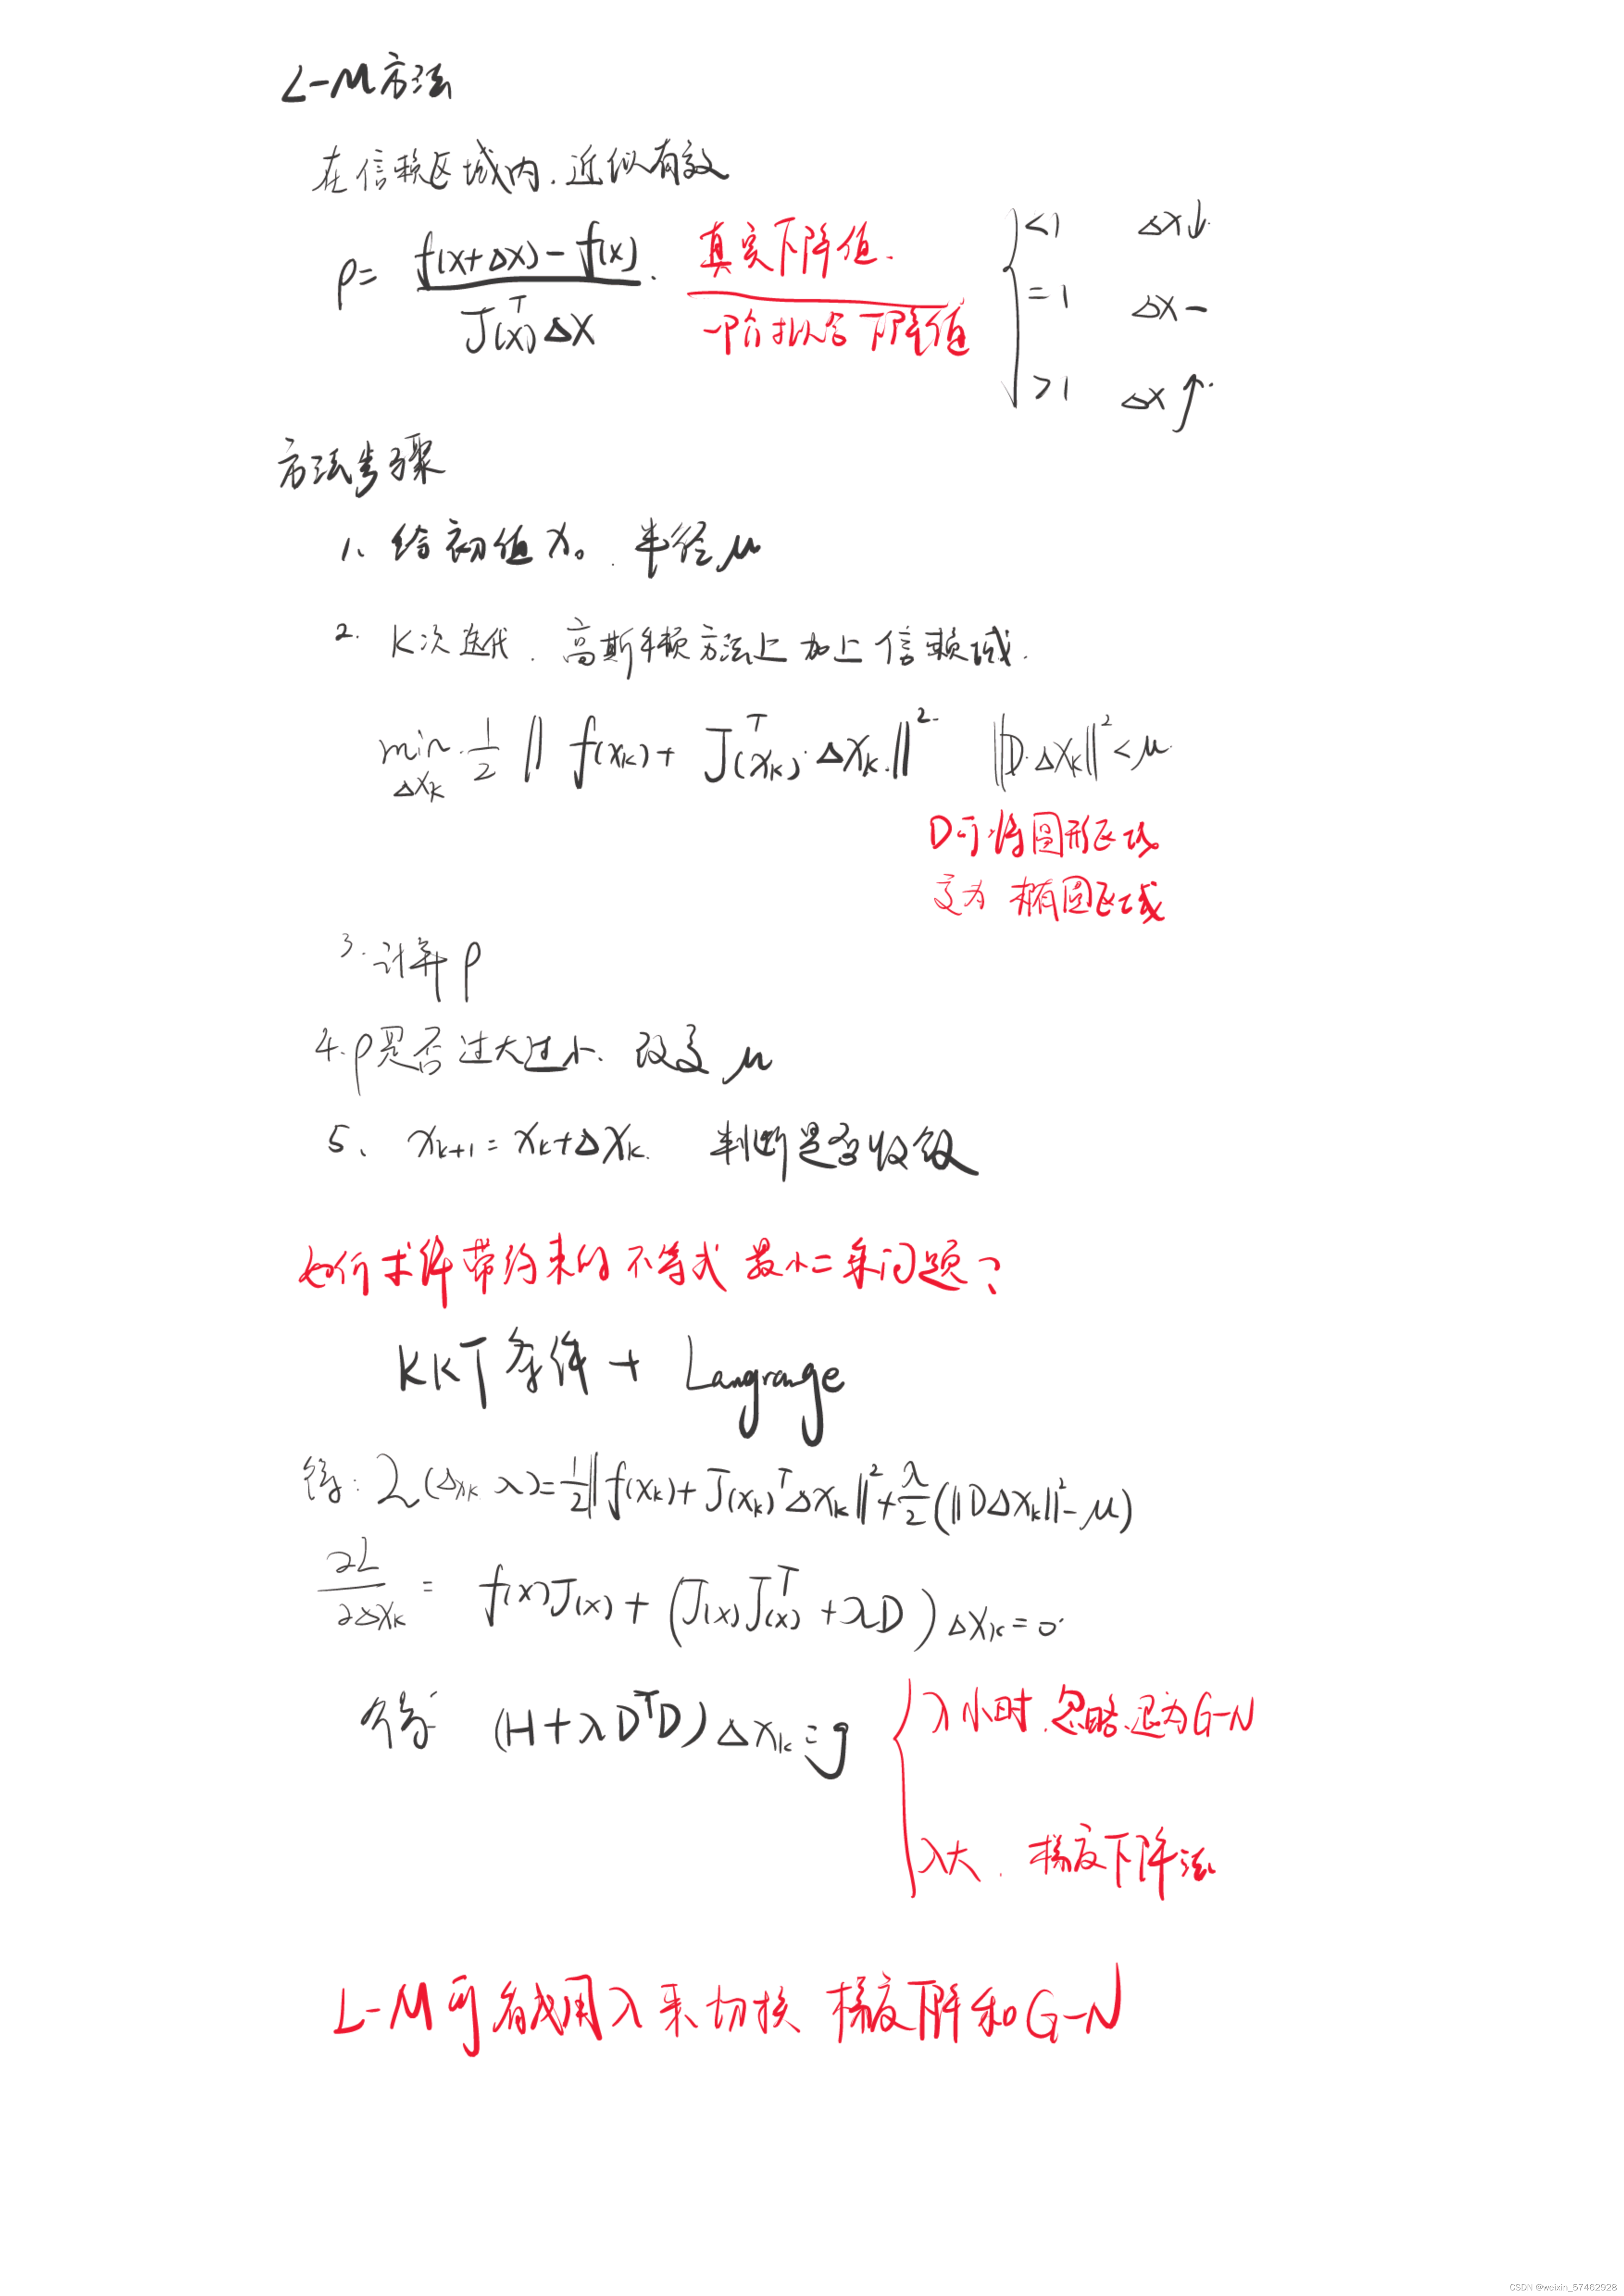 L-M方法
在信赖区域内.近似有效
ρ= f(x+Δx)-f(x) / J(x)ᵀΔx . 真实下降值. / 一阶拟合下降值 { <1 Δx↓.
=1 Δx-
>1 Δx↑.
方法步骤
1、给初值x₀. 半径μ
2. K次迭代. 高斯牛顿方法上加上信赖域.
min Δxₖ 1/2 ‖f(xₖ)+J(xₖ)ᵀ·Δxₖ‖² ‖D·Δxₖ‖²<μ
D可将圆形区域
变为椭圆区域
3.计算ρ
4.ρ是否过大过小、改变μ
5、xₖ₊₁=xₖ+Δxₖ. 判断是否收敛
如何求解带约束的不等式最小二乘问题?
KKT条件+Langrange
得: L(Δxₖ λ)=1/2‖f(xₖ)+J(xₖ)ᵀΔxₖ‖²+λ/2(‖DΔxₖ‖²-μ)
∂L/∂Δxₖ = f(x)J(x)+(J(x)J(x)ᵀ+λD)Δxₖ=0
(H+λDᵀD)Δxₖ=g { λ小时.忽略、退为G-N
λ大. 梯度下降法
L-M可看成用λ来切换梯度下降和G-N
CSDN @weixin_57462928